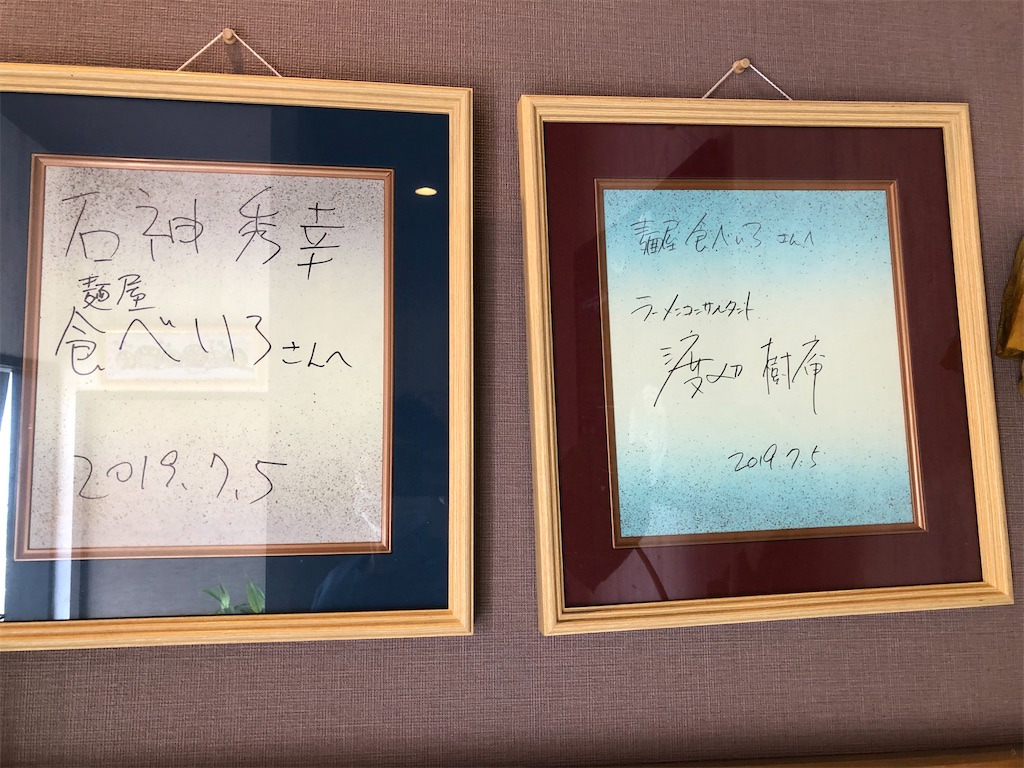 石神秀幸
麺屋
食べいろさんへ
2019.7.5
麺屋 食べいろ さんへ
ラーメンコンサルタント
渡辺 樹庵
2019.7.5